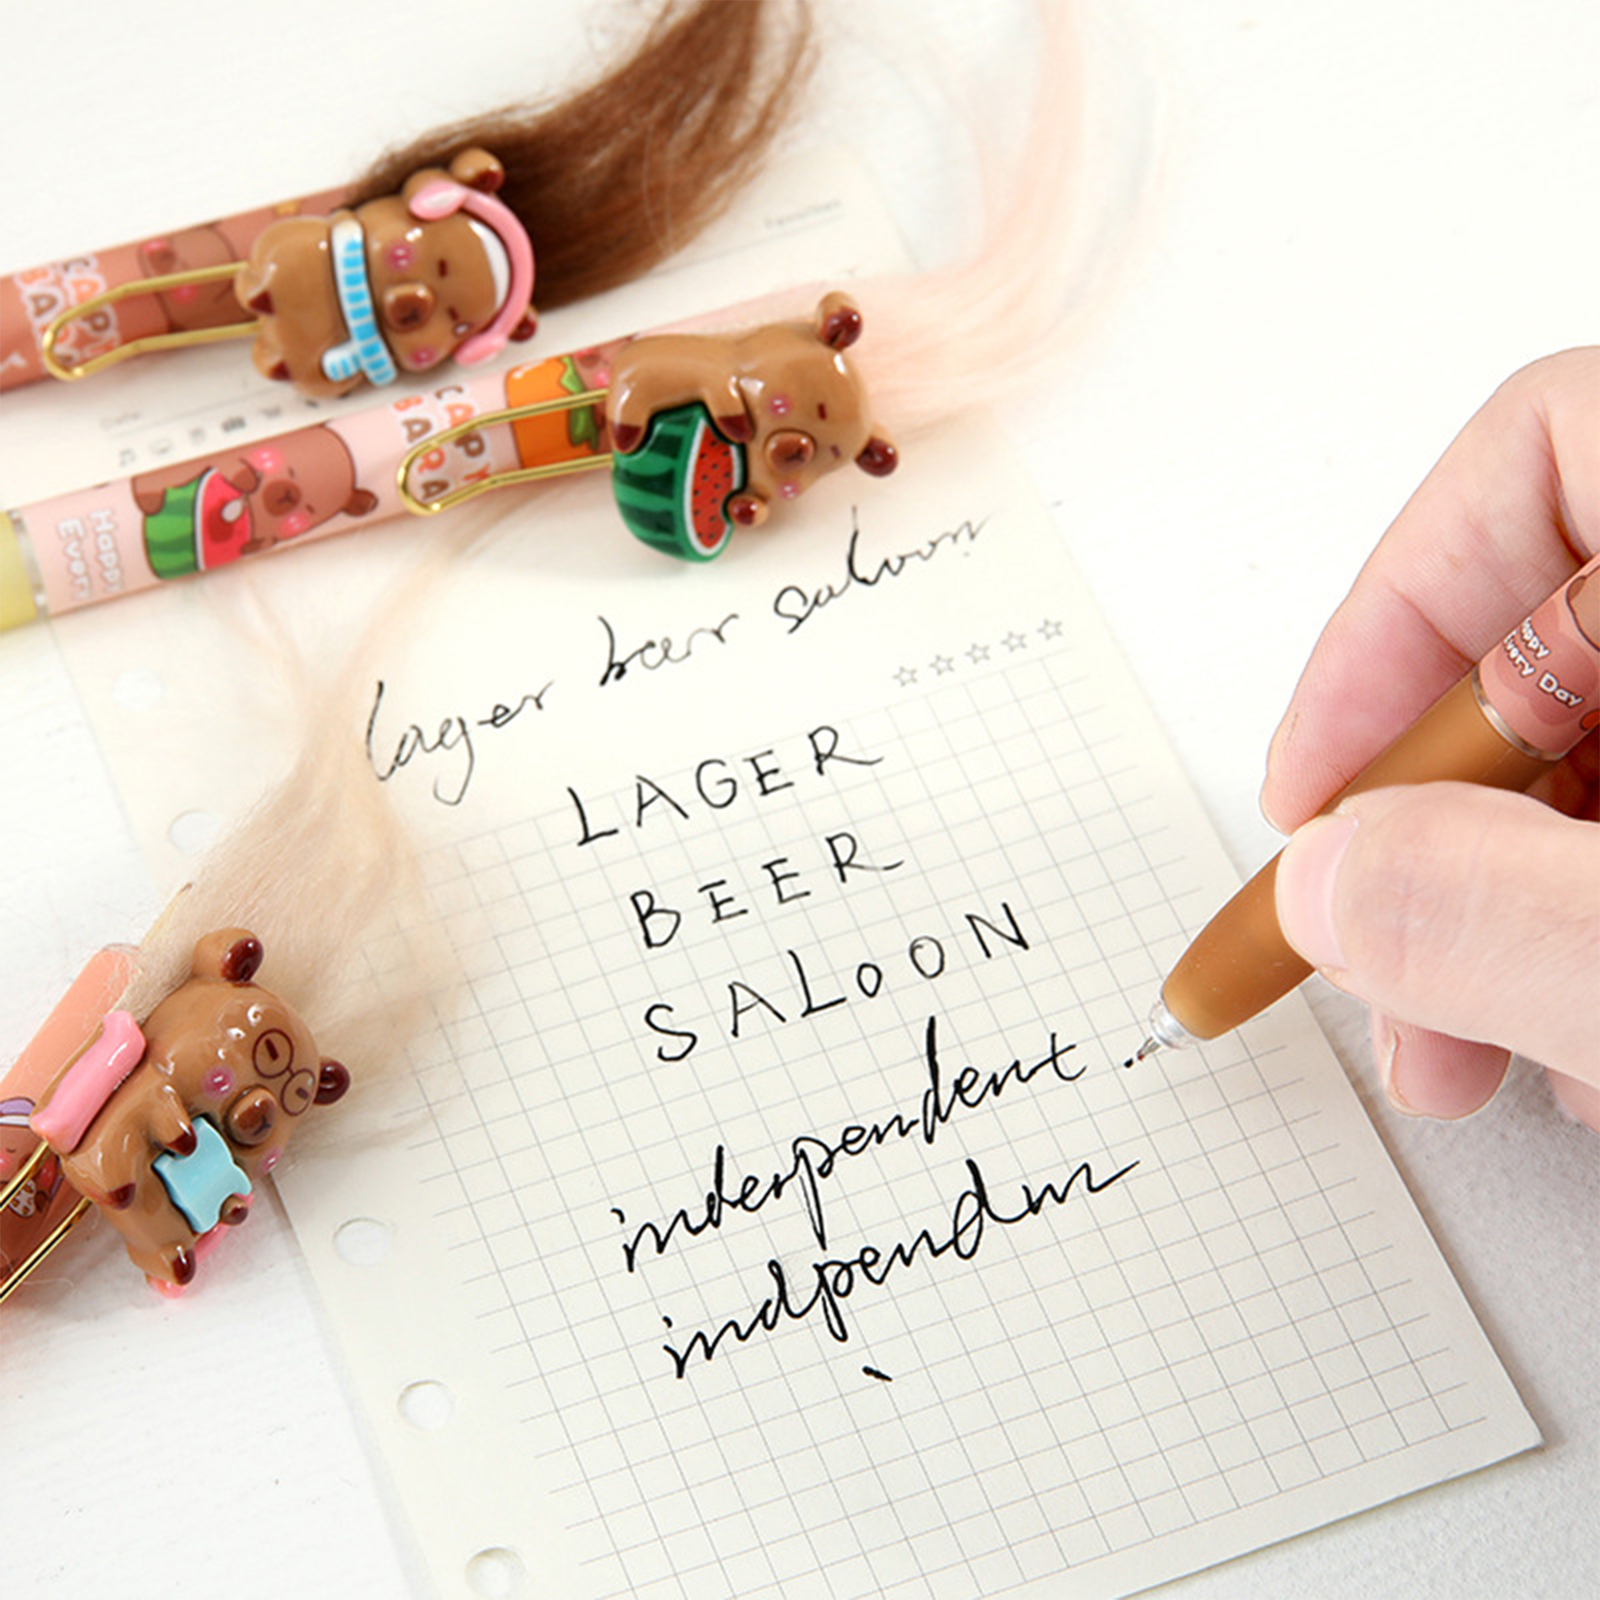 CAPY
BARA
CAPY
BARA
Happy
Every
lager beer saloon
LAGER
BEER
SALOON
Happy
Every Day
inderpendent .
indpendm